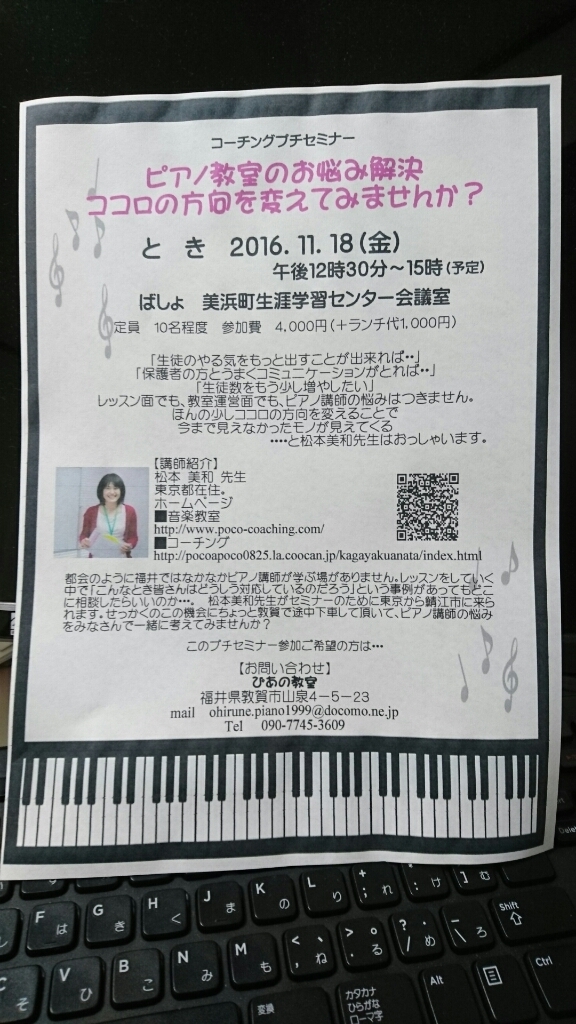 コーチングプチセミナー
ピアノ教室のお悩み解決
ココロの方向を変えてみませんか？
と き 2016.11.18(金)
午後12時30分～15時(予定)
ばしょ 美浜町生涯学習センター会議室
定員 10名程度 参加費 4,000円(＋ランチ代1,000円)
「生徒のやる気をもっと出すことが出来れば・・」
「保護者の方とうまくコミュニケーションがとれば・・」
「生徒数をもう少し増やしたい」
レッスン面でも、教室運営面でも、ピアノ講師の悩みはつきません。
ほんの少しココロの方向を変えることで
今まで見えなかったモノが見えてくる
・・・・と松本美和先生はおっしゃいます。
【講師紹介】
松本 美和 先生
東京都在住。
ホームページ
■音楽教室
http://www.poco-coaching.com/
■コーチング
http://pocoapoco0825.la.coocan.jp/kagayakuanata/index.html
都会のように福井ではなかなかピアノ講師が学ぶ場がありません。レッスンをしていく
中でと「こんなとき皆さんはどうしう対応しているのだろう」という事例があってもどこ
に相談したらいいのか・・・。 松本美和先生がセミナーのために東京から鯖江市に来ら
れます。せっかくのこの機会にちょっと敦賀で途中下車して頂いて、ピアノ講師の悩み
をみなさんで一緒に考えてみませんか？
このプチセミナー参加ご希望の方は・・・
【お問い合わせ】
ぴあの教室
福井県敦賀市山泉4－5－23
mail ohirune.piano1999@docomo.ne.jp
Tel 090-7745-3609
Delete
F は G き H く J ま K の L り + ; れ * : け } ] む
し
Shift
C そ V ひ B こ N み M も < 、 , ね > 。 . る ? ・ / め _ \ ろ
変換 カタカナ ひらがな ローマ字 Alt Ctrl